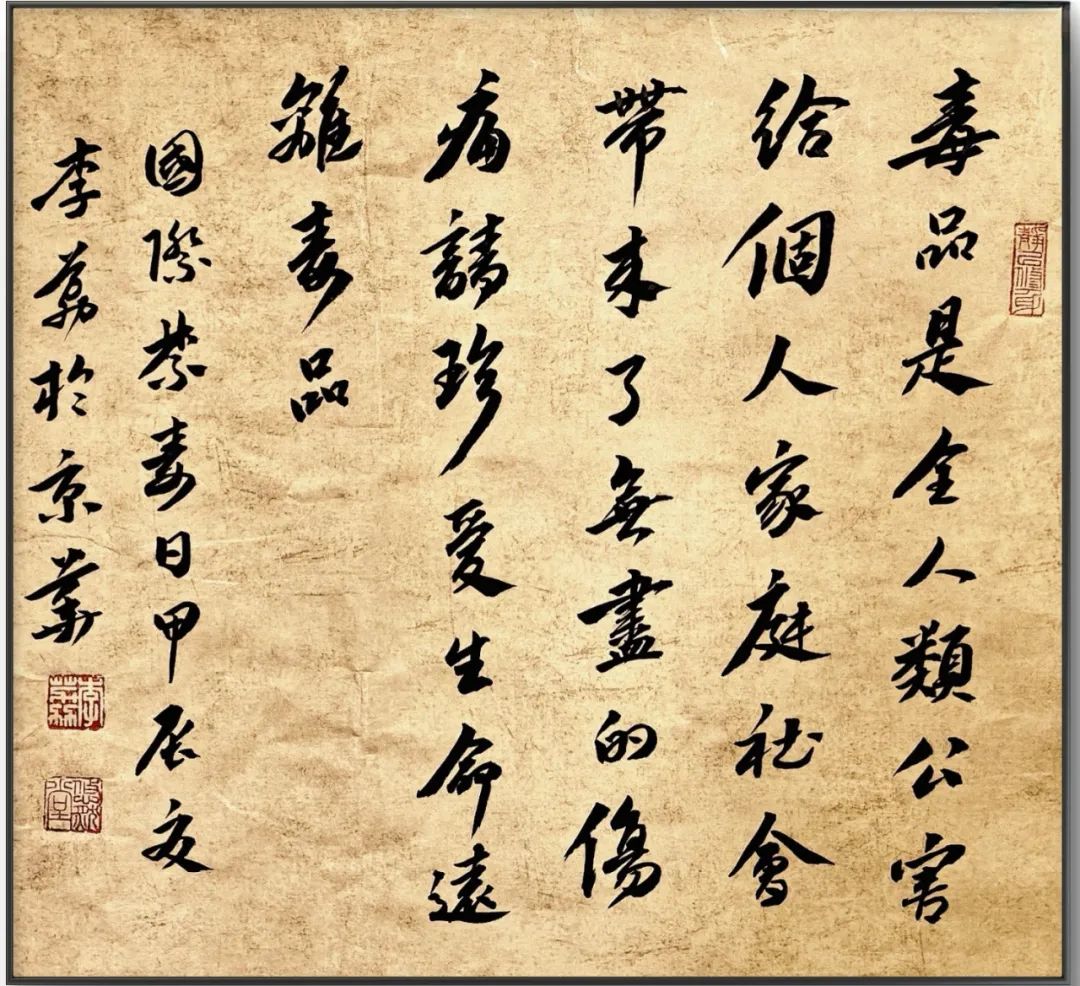 毒品是全人類公害
給個人家庭社會
帶来了無盡的傷
痛請珍爱生命遠
離毒品
國際禁毒日甲辰夏
李荔於京華
靜以修身
李荔